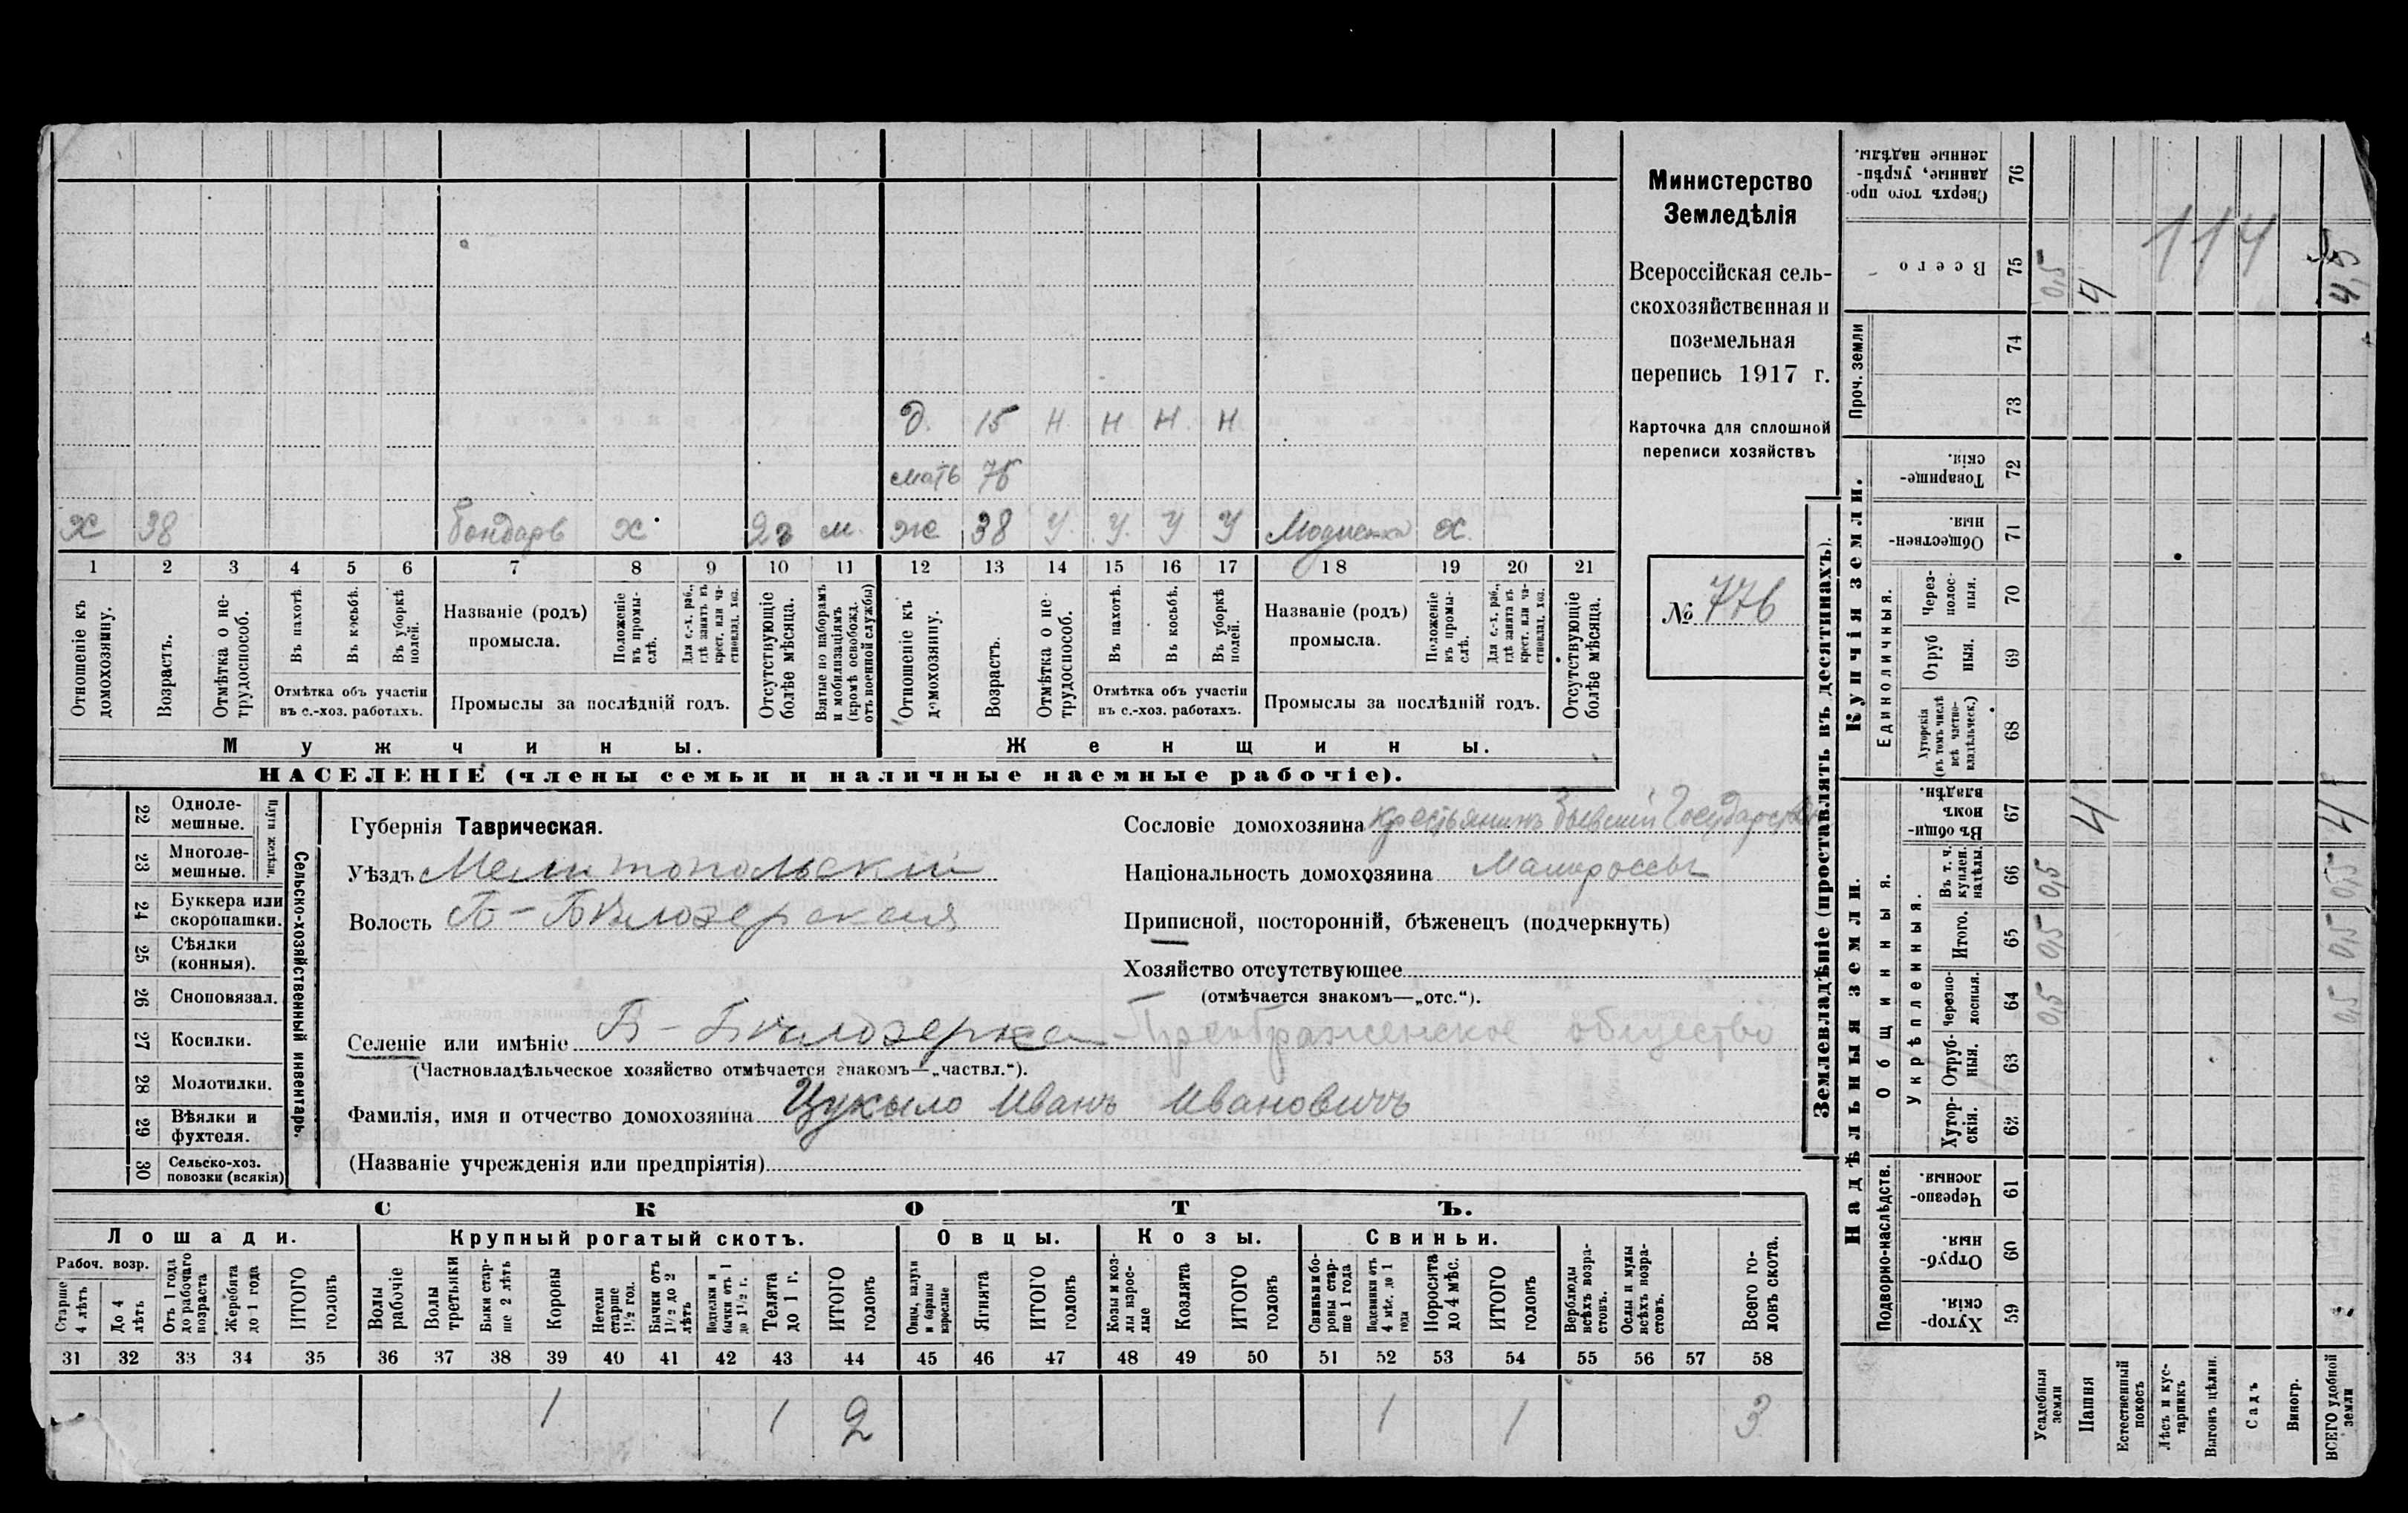 Министерство
Земледѣлія
Всероссійская сель-
скохозяйственная и
поземельная
перепись 1917 г.
Карточка для сплошной
переписи хозяйствъ
№ 776
Д. 15 Н Н Н Н
мать 76
х 38 бондарь х 23 м. ж 38 У У У У Модистка х
1 2 3 4 5 6 7 8 9 10 11 12 13 14 15 16 17 18 19 20 21
Отношеніе къ домохозяину.
Возрастъ.
Отмѣтка о не-трудоспособ.
Въ пахотѣ.
Въ косьбѣ.
Въ уборкѣ полей.
Отмѣтка объ участіи
въ с.-хоз. работахъ.
Названіе (родъ)
промысла.
Положеніе въ промы-слѣ.
Для с.-х. раб., гдѣ занятъ въ крест. или ча-стновлад. хоз.
Промыслы за послѣдній годъ.
Отсутствующіе болѣе мѣсяца.
Взятые по наборамъ и мобилизаціямъ (кромѣ освобожд. отъ военной службы)
Отношеніе къ домохозяину.
Возрастъ.
Отмѣтка о не трудоспособ.
Въ пахотѣ.
Въ косьбѣ.
Въ уборкѣ полей.
Отмѣтка объ участіи
въ с.-хоз. работахъ.
Названіе (родъ)
промысла.
Положеніе въ промы-слѣ.
Для с.-х. раб., гдѣ занятъ въ крест. или ча-стновлад. хоз.
Промыслы за послѣдній годъ.
Отсутствующіе болѣе мѣсяца.
Мужчины. Женщины.
НАСЕЛЕНІЕ (члены семьи и наличные наемные рабочіе).
Сельско-хозяйственный инвентарь.
Плуги желѣзн.
22 Одноле-мешные.
23 Многоле-мешные.
24 Буккера или скоропашки.
25 Сѣялки (конныя).
26 Сноповязал.
27 Косилки.
28 Молотилки.
29 Вѣялки и фухтеля.
30 Сельско-хоз. повозки (всякія)
Губернія Таврическая.
Уѣздъ Мелитопольскій
Волость Б-Бѣлозерская
Сословіе домохозяина крестьянинъ бывшій Государств
Національность домохозяина Малороссы
Приписной, посторонній, бѣженецъ (подчеркнуть)
Хозяйство отсутствующее
(отмѣчается знакомъ—„отс.“).
Селеніе или имѣніе Б-Бѣлозерка - Преображенское общество
(Частновладѣльческое хозяйство отмѣчается знакомъ—„частвл.“).
Фамилія, имя и отчество домохозяина Цукыло Иванъ Ивановичъ
(Названіе учрежденія или предпріятія)
СКОТЪ.
Лошади. Крупный рогатый скотъ. Овцы. Козы. Свиньи.
Рабоч. возр.
Старше 4 лѣтъ
До 4 лѣтъ
Отъ 1 года до рабочаго возраста
Жеребята до 1 года
ИТОГО головъ
Волы рабочіе
Волы третьяки
Быки стар-ше 2 лѣтъ
Коровы
Нетели старше 1½ год.
Бычки отъ 1½ до 2 лѣтъ
Подтелки и бычки отъ 1 до 1½ г.
Телята до 1 г.
ИТОГО головъ
Овцы, валухи и бараны взрослые
Ягнята
ИТОГО головъ
Козы и коз-лы взрос-лые
Козлята
ИТОГО головъ
Свиньи и бо-ровы стар-ше 1 года
Подсвинки отъ 4 мѣс. до 1 года
Поросята до 4 мѣс.
ИТОГО головъ
Верблюды всѣхъ возра-стовъ.
Ослы и мулы всѣхъ возра-стовъ.
Всего го-ловъ скота.
31 32 33 34 35 36 37 38 39 40 41 42 43 44 45 46 47 48 49 50 51 52 53 54 55 56 57 58
1 1 2 1 1 3
Землевладѣніе (проставлять въ десятинахъ).
Надѣльныя земли. Купчія земли. Проч. земли
Подворно-наслѣдств.
Общинныя.
Укрѣпленныя.
Единоличныя.
Сверхъ того про-данные, укрѣп-ленные надѣлы. 76
Всего 75 0,5 4 4,5
114
74
73
Товарище-скія. 72
Обществен-ныя. 71
Через-полос-ныя. 70
Отруб ныя. 69
Хуторскія (въ томъ числѣ всѣ частно-владѣльческ.) 68
Въ общи-номъ владѣн. 67 4 4
Въ т. ч. куплен. надѣлы. 66 0,5 0,5
Итого. 65 0,5 0,5
Черезпо-лосныя. 64 0,5 0,5
Отруб-ныя. 63
Хутор-скія. 62
Черезпо-лосныя. 61
Отруб-ныя. 60
Хутор-скія. 59
Усадебныя земли
Пашня
Естественный покосъ
Лѣсъ и кус-тарникъ
Выгонъ цѣлин.
Садъ
Виногр.
ВСЕГО удобной земли